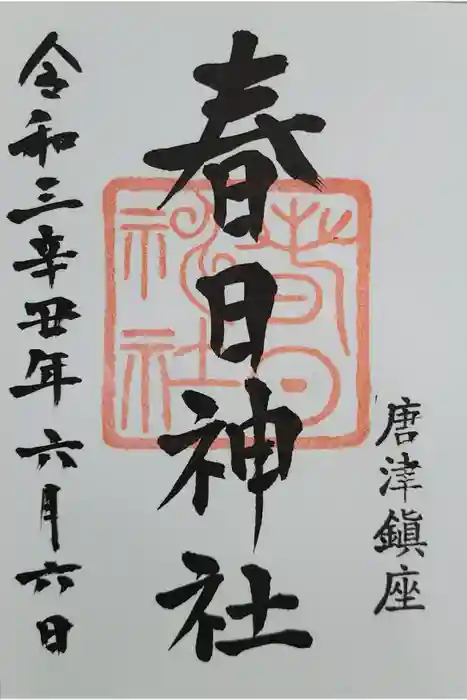 唐津鎮座
春日神社
春日
神社
令和三辛丑年六月六日